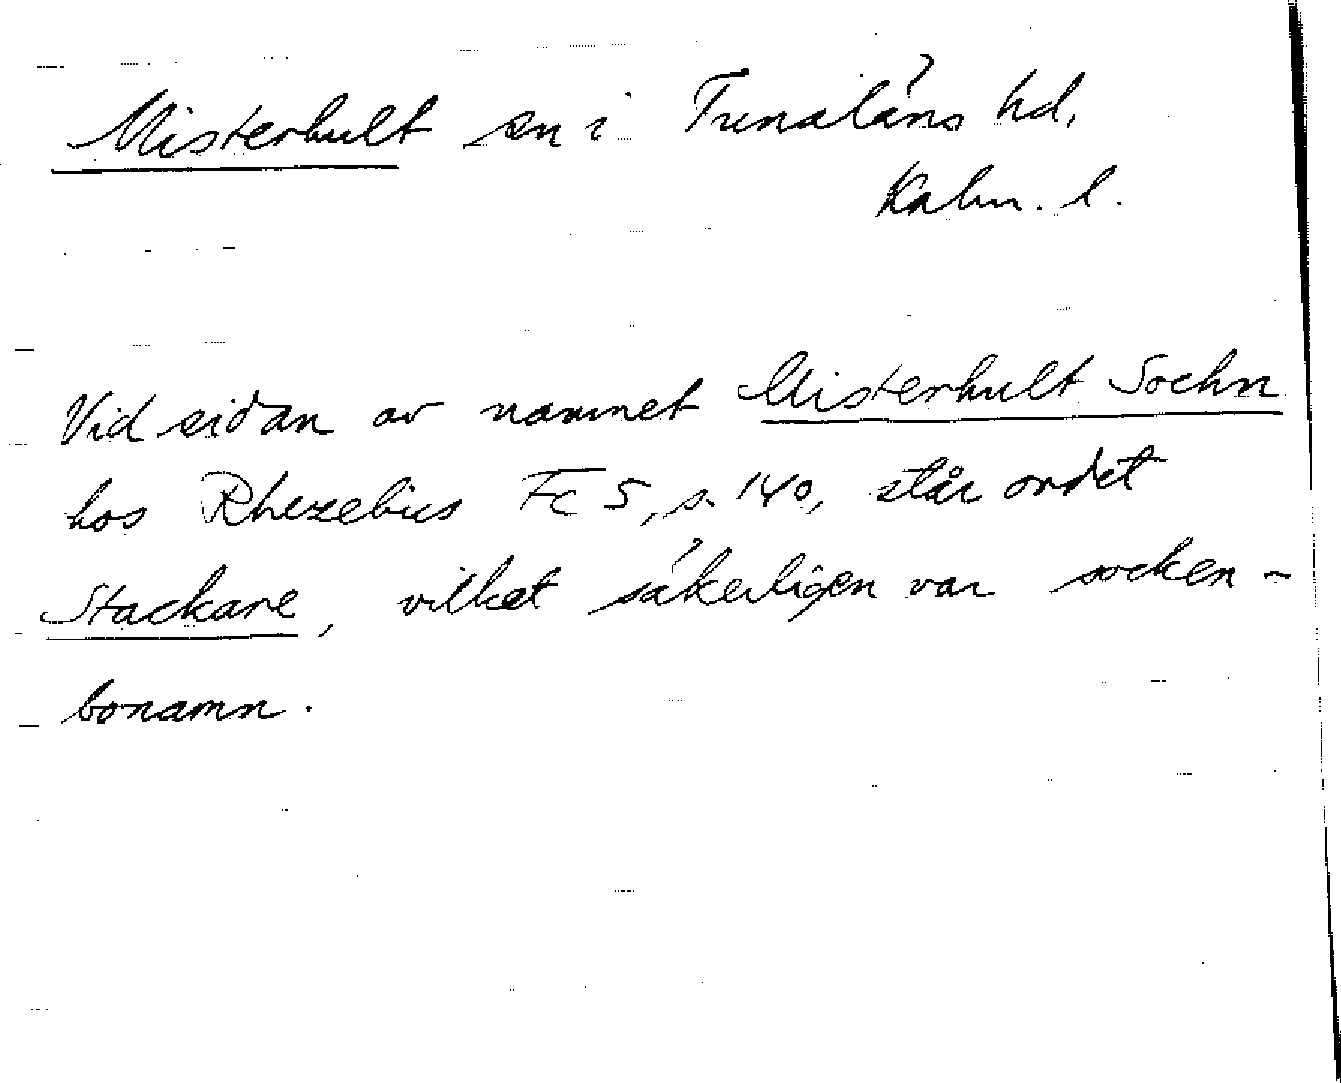 Misterhult sn i Tunaläns hd.
Kalm. l.
Vid sidan av namnet Misterhult Sochn
hos Rhezelius Fc 5, s. 140, står ordet
Stackare, vilket säkerligen var socken-
bonamn.